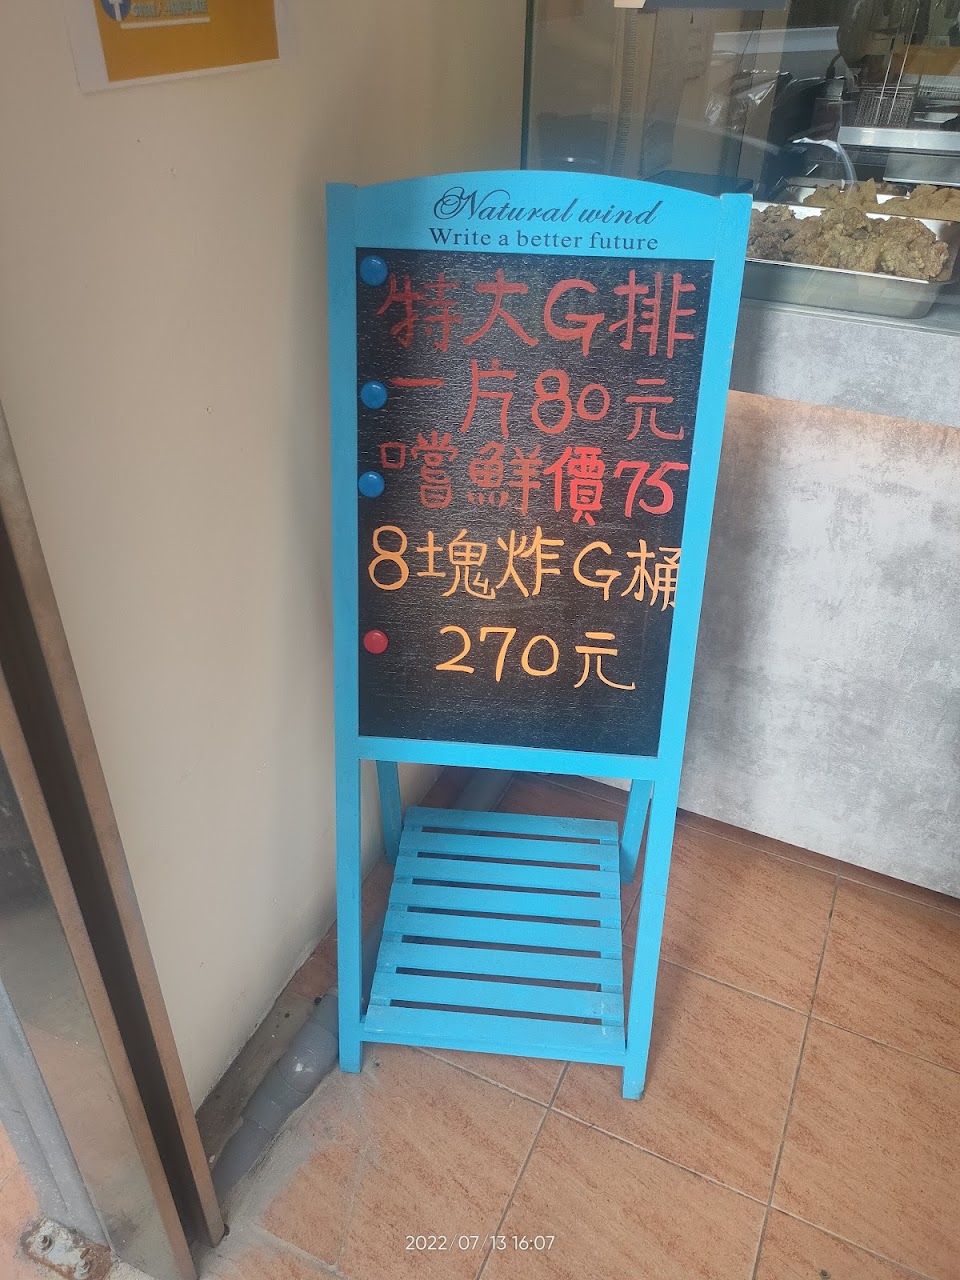 Natural wind
Write a better future
特大G排
一片80元
嚐鮮價75
8塊炸G桶
270元
2022/07/13 16:07